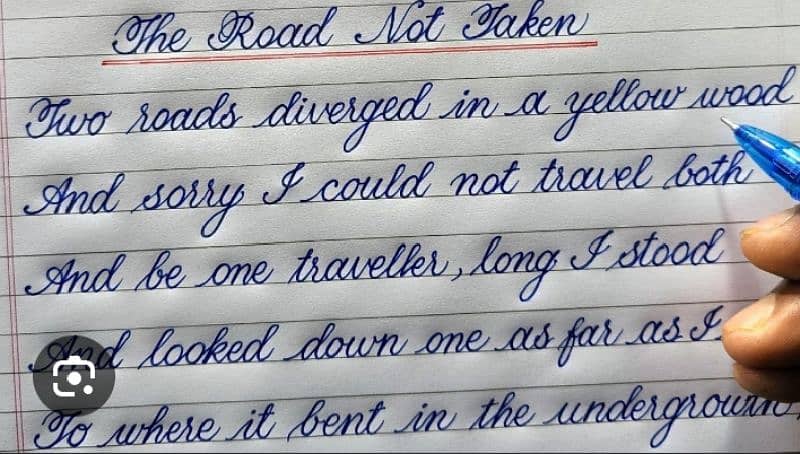 The Road Not Taken
Two roads diverged in a yellow wood
And sorry I could not travel both
And be one traveller, long I stood
And looked down one as far as I
To where it bent in the undergrowth,